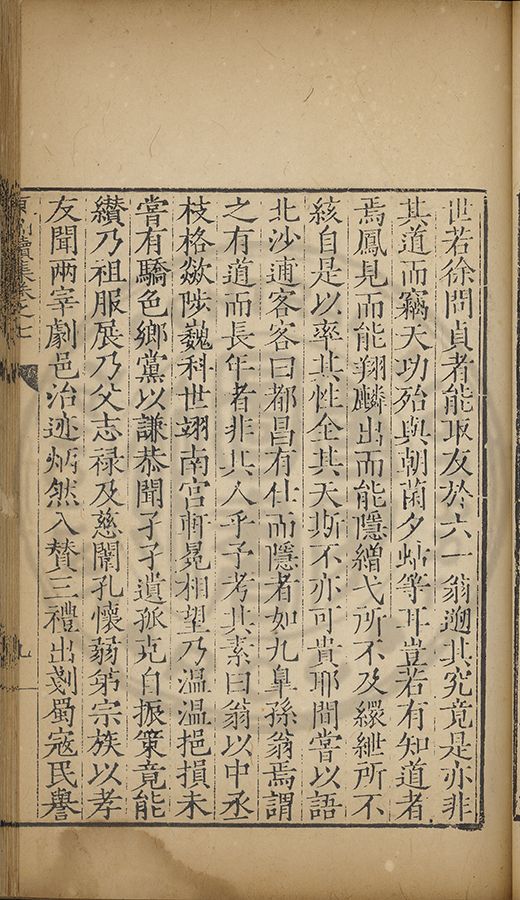 世若徐問貞者能取友於六一翁遡其究竟是亦非
其道而竊天功殆與朝菌夕蛄等耳豈若有知道者
焉鳳見而能翔麟出而能隱繒弋所不及纓紲所不
絯自是以率其性全其天斯不亦可貴耶間嘗以語
北沙逋客客曰都昌有仕而隱者如九臯孫翁焉謂
之有道而長年者非其人乎予考其素曰翁以中丞
枝格歘陟巍科世翊南宮軒冕相望乃溫溫挹損未
嘗有驕色鄉黨以謙恭聞孑孑遺孤克自振策竟能
纘乃祖服展乃父志祿及慈闈孔懷弱弟宗族以孝
友聞兩宰劇邑治迹炳然入贊三禮出剗蜀寇民譽
續集卷之七
九